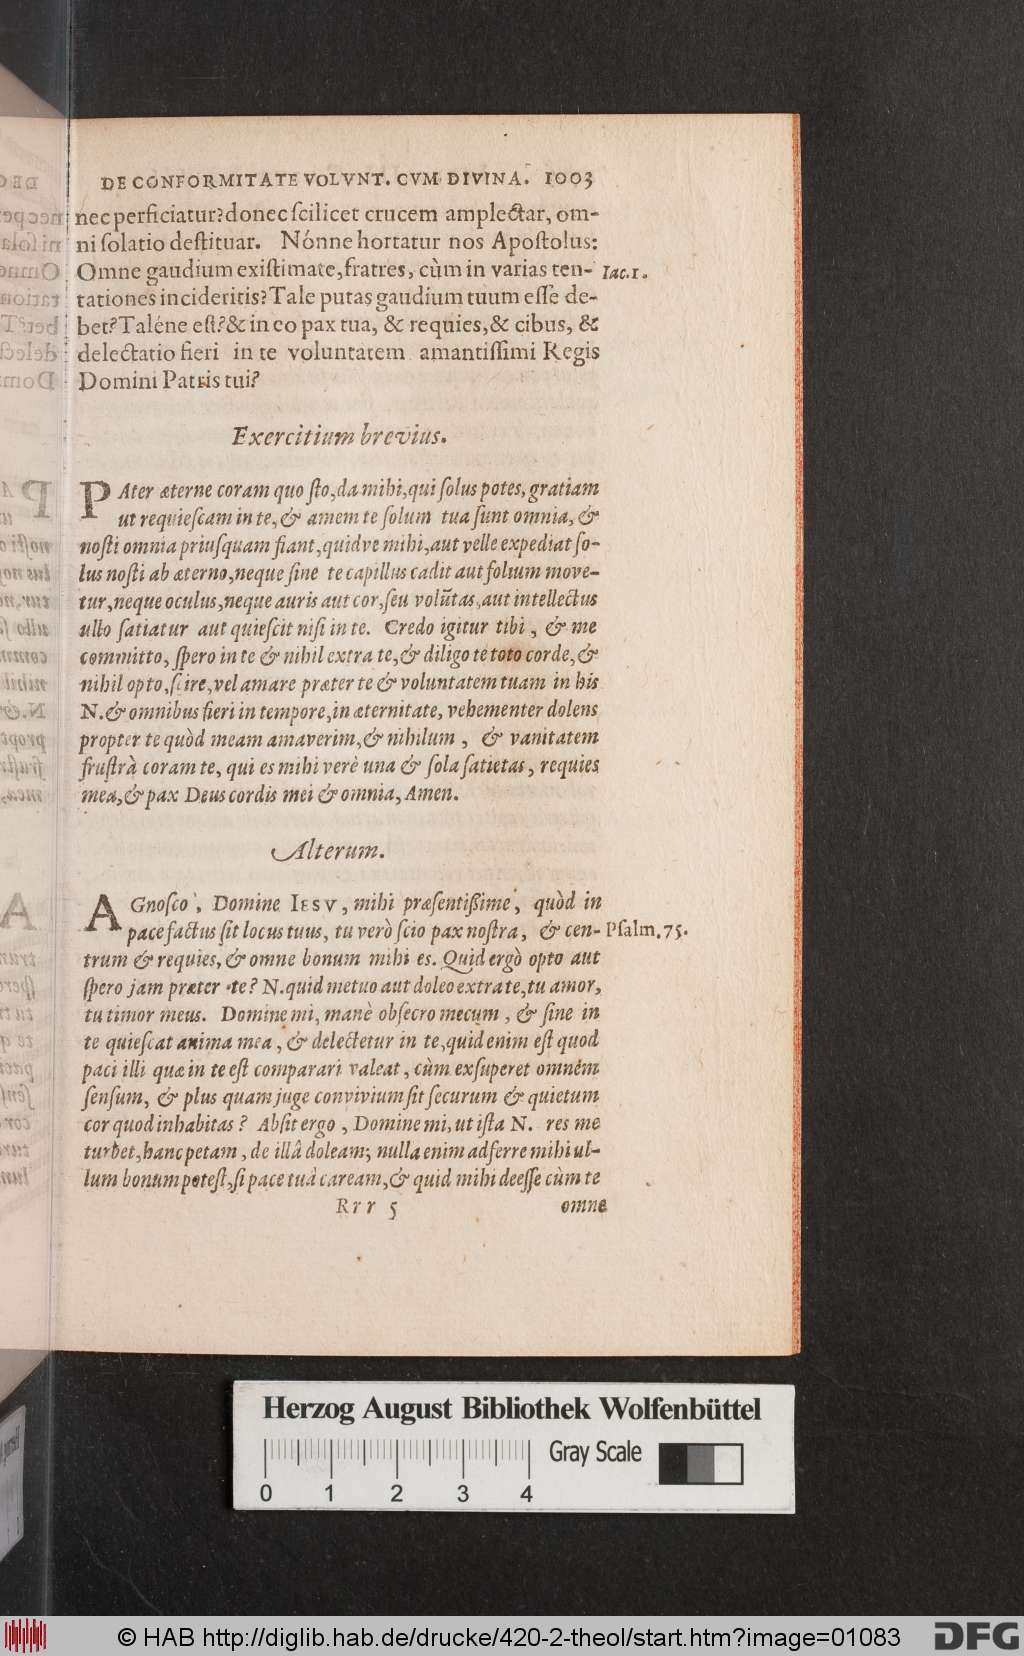 DE CONFORMITATE VOLVNT. CVM DIVINA. 1003
nec perficiatur? donec scilicet crucem amplectar, om-
ni solatio destituar. Nónne hortatur nos Apostolus:
Omne gaudium existimate, fratres, cùm in varias ten- Iac.1.
tationes incideritis? Tale putas gaudium tuum esse de-
bet? Taléne est? & in eo pax tua, & requies, & cibus, &
delectatio fieri in te voluntatem amantissimi Regis
Domini Patris tui?
Exercitium brevius.
PAter æterne coram quo sto, da mihi, qui solus potes, gratiam
ut requiescam in te, & amem te solum tua sunt omnia, &
nosti omnia priusquam fiant, quidve mihi, aut velle expediat so-
lus nosti ab æterno, neque sine te capillus cadit aut folium move-
tur, neque oculus, neque auris aut cor, seu volūtas, aut intellectus
ullo satiatur aut quiescit nisi in te. Credo igitur tibi, & me
committo, spero in te & nihil extra te, & diligo te toto corde, &
nihil opto, scire, vel amare præter te & voluntatem tuam in his
N. & omnibus fieri in tempore, in æternitate, vehementer dolens
propter te quòd meam amaverim, & nihilum, & vanitatem
frustrà coram te, qui es mihi verè una & sola satietas, requies
mea, & pax Deus cordis mei & omnia, Amen.
Alterum.
AGnosco, Domine IESV, mihi præsentißime, quòd in
pace factus sit locus tuus, tu verò scio pax nostra, & cen- Psalm. 75.
trum & requies, & omne bonum mihi es. Quid ergò opto aut
spero jam præter te? N. quid metuo aut doleo extra te, tu amor,
tu timor meus. Domine mi, manè obsecro mecum, & sine in
te quiescat anima mea, & delectetur in te, quid enim est quod
paci illi quæ in te est comparari valeat, cùm exsuperet omnem
sensum, & plus quam juge convivium sit securum & quietum
cor quod inhabitas? Absit ergo, Domine mi, ut ista N. res me
turbet, hanc petam, de illâ doleam; nulla enim adferre mihi ul-
lum bonum potest, si pace tuâ caream, & quid mihi deesse cùm te
Rrr 5 omne
Herzog August Bibliothek Wolfenbüttel
Gray Scale
0 1 2 3 4
© HAB http://diglib.hab.de/drucke/420-2-theol/start.htm?image=01083
DFG